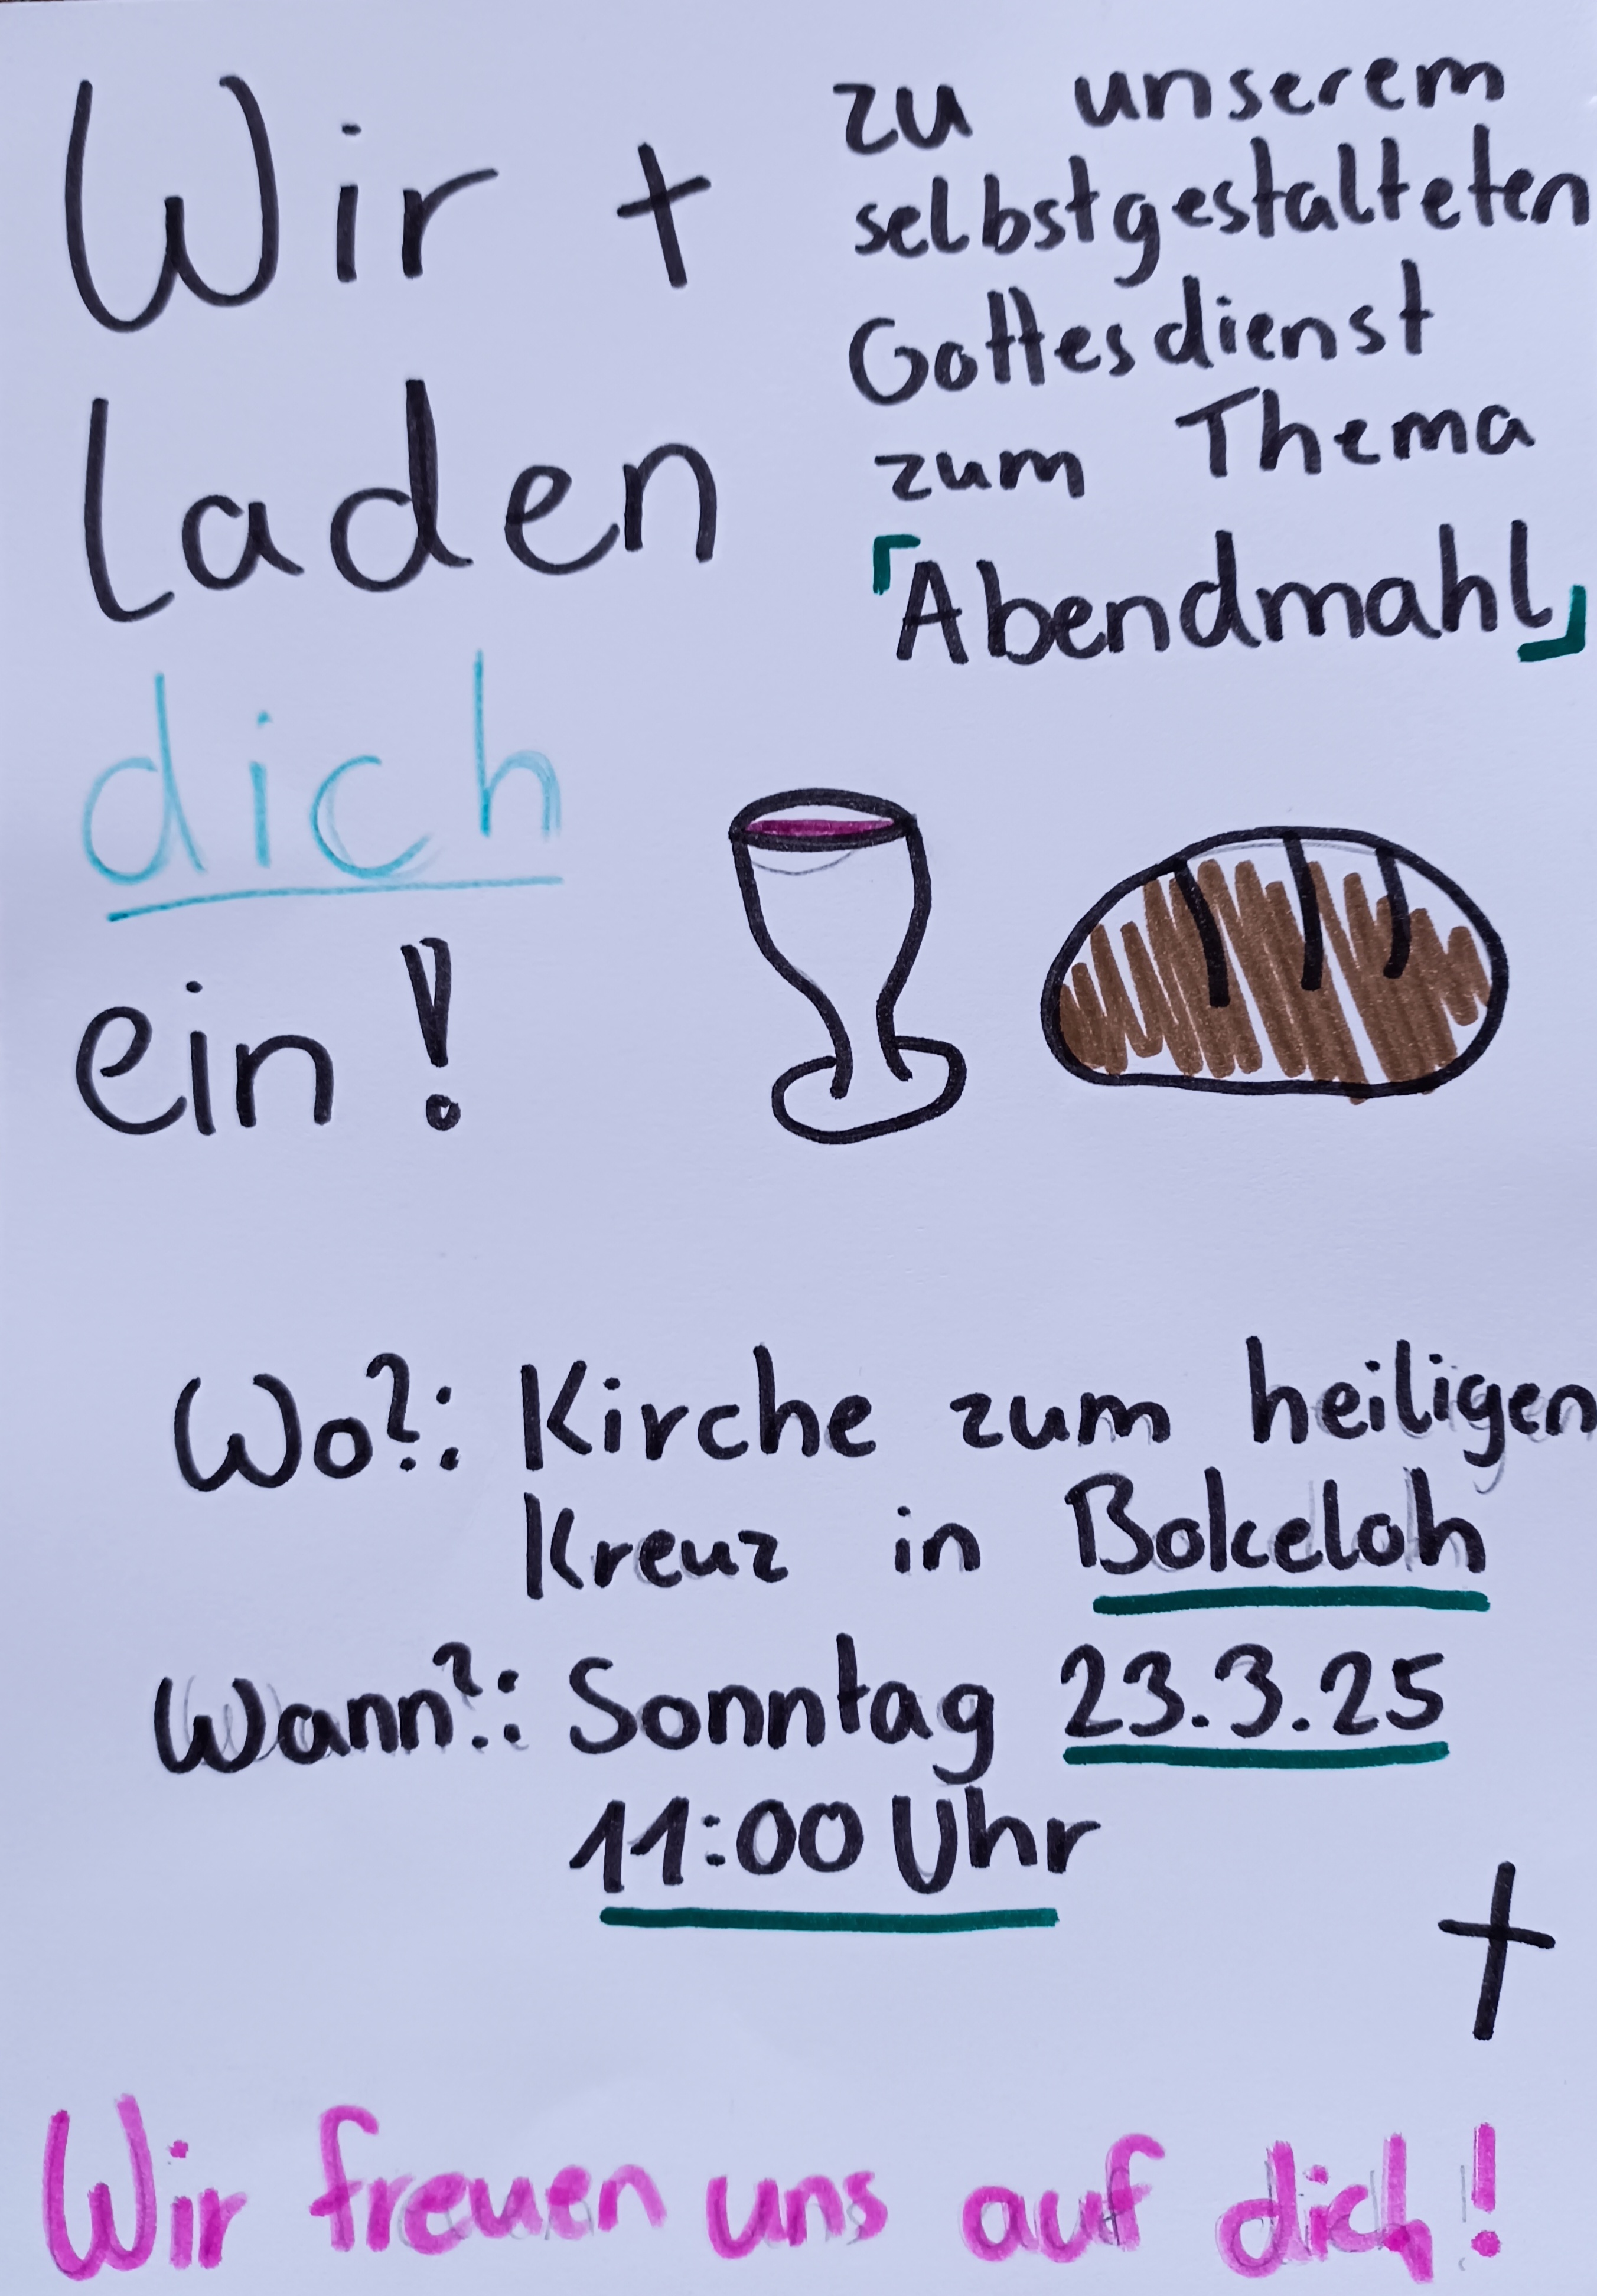 Wir
laden
dich
ein!
zu unserem
selbstgestalteten
Gottesdienst
zum Thema
「Abendmahl」
Wo?: Kirche zum heiligen
Kreuz in Bokeloh
Wann?: Sonntag 23.3.25
11:00 Uhr
Wir freuen uns auf dich!